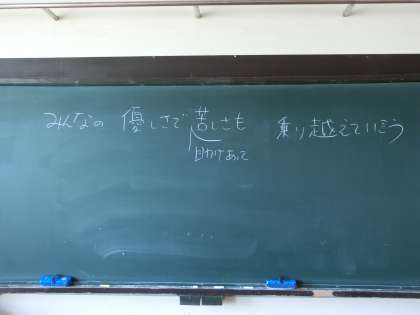 みんなの 優しさで 苦しさも 乗り越えていこう
助けあって